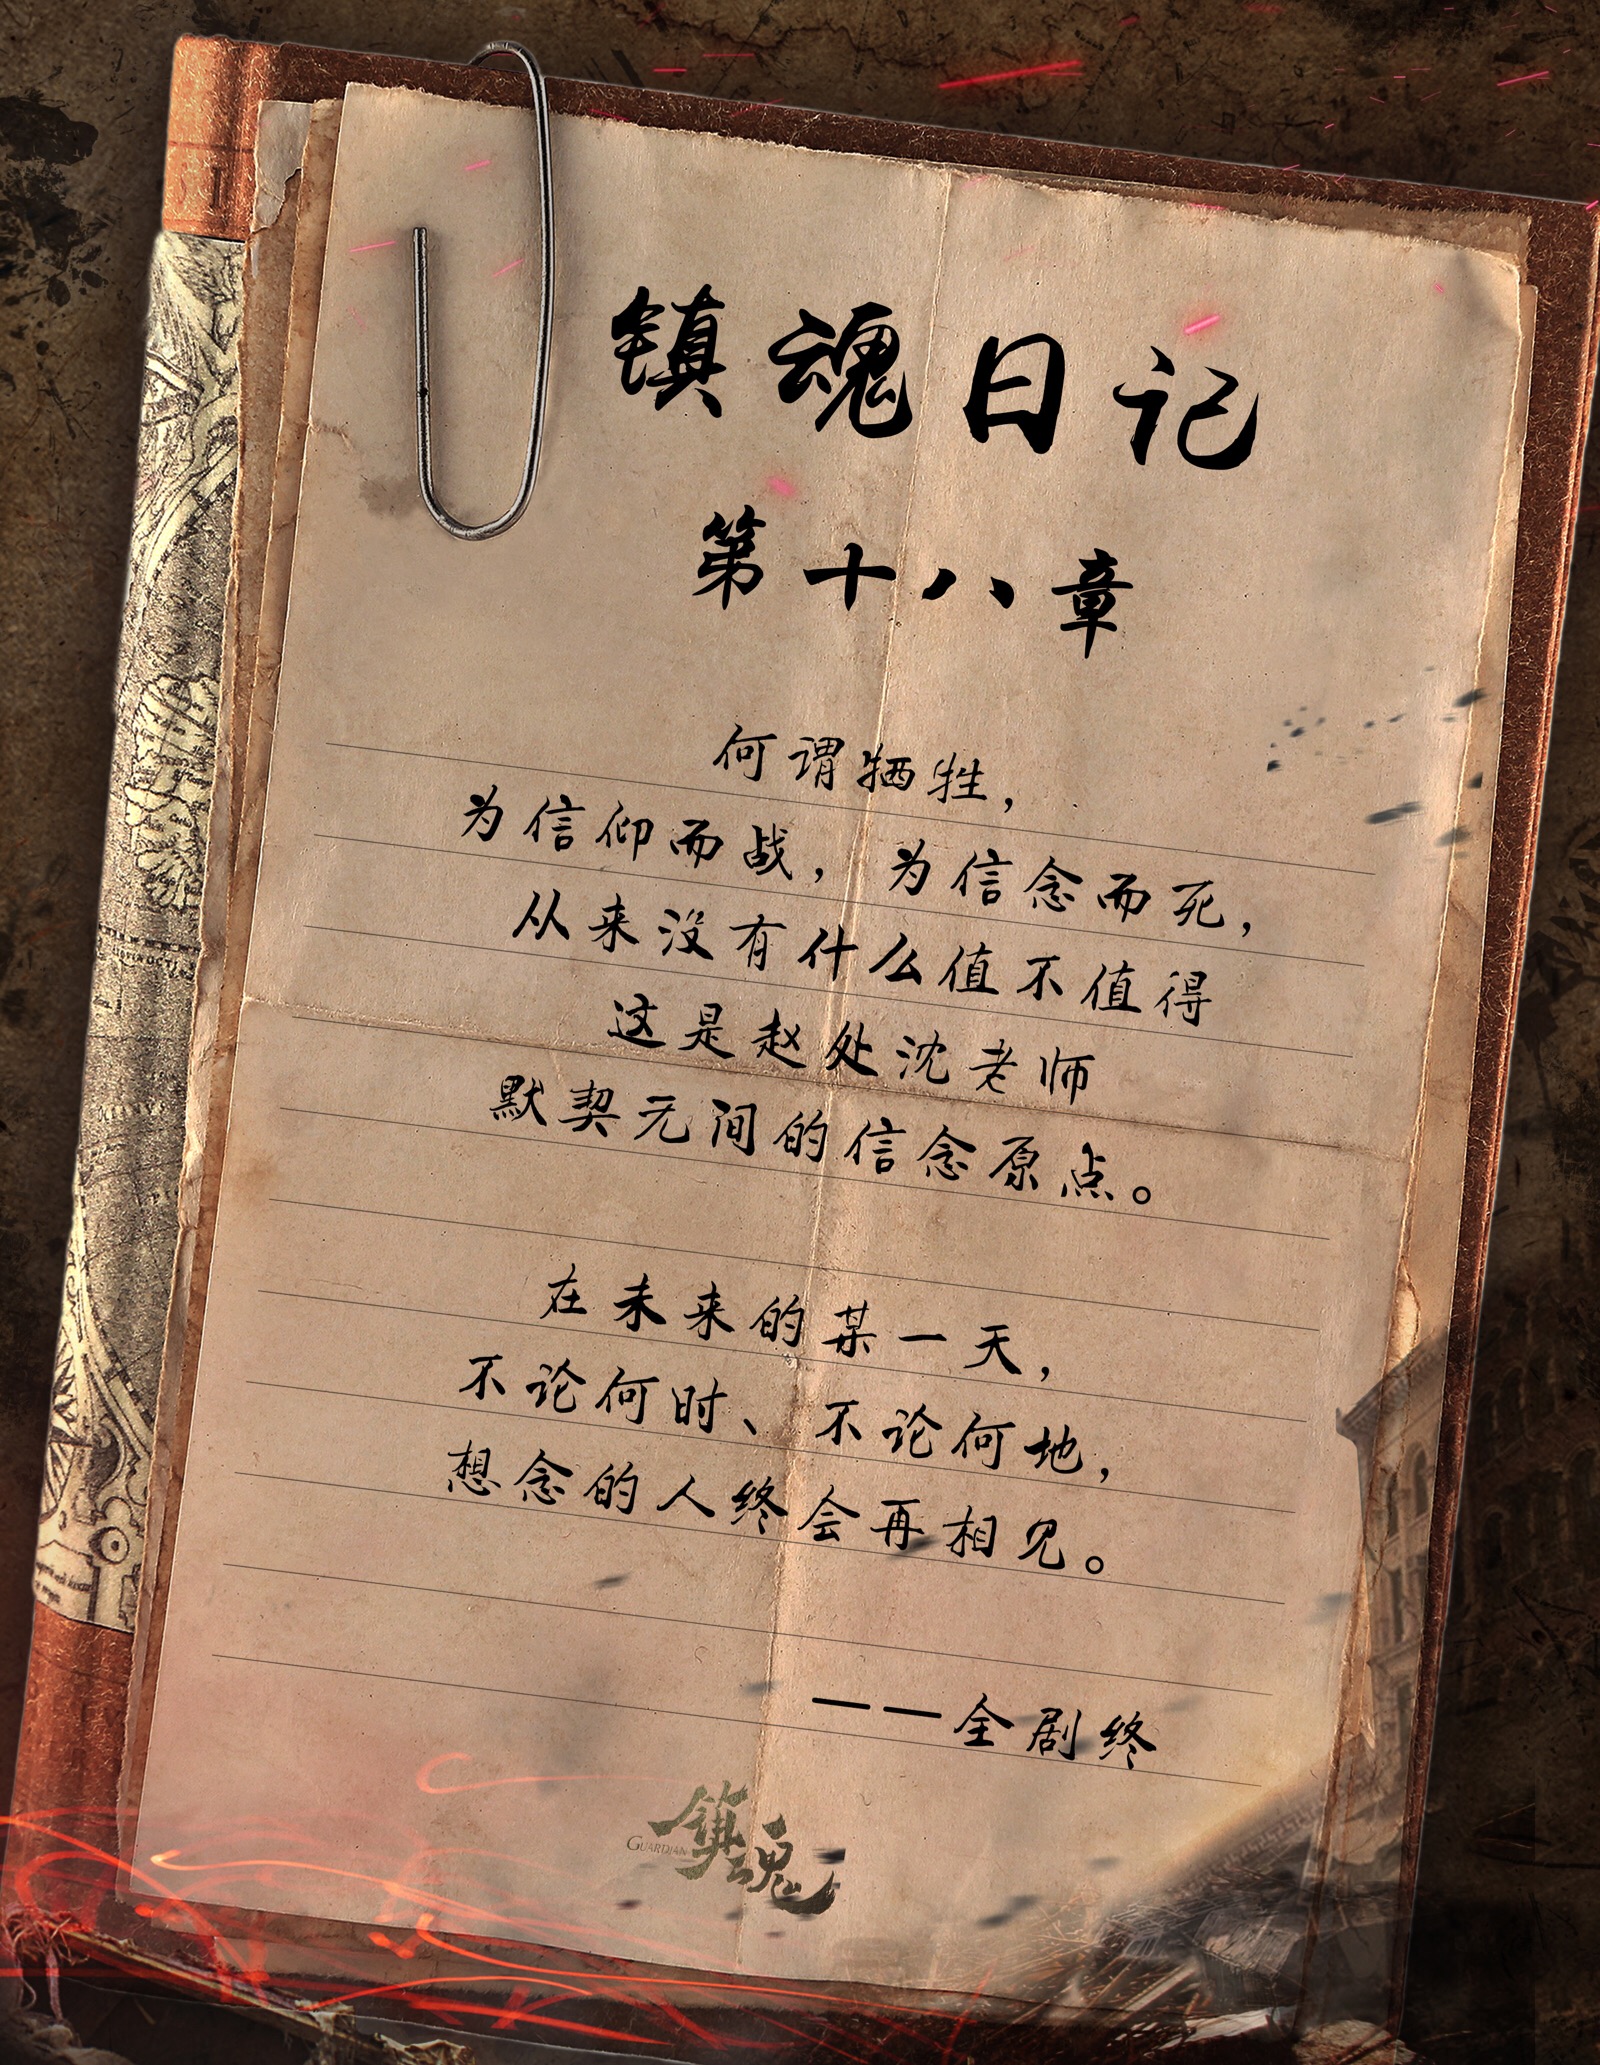 镇魂日记
第十八章
何谓牺牲，
为信仰而战，为信念而死，
从来没有什么值不值得
这是赵处沈老师
默契无间的信念原点。
在未来的某一天，
不论何时、不论何地，
想念的人终会再相见。
——全剧终
镇魂
GUARDIAN